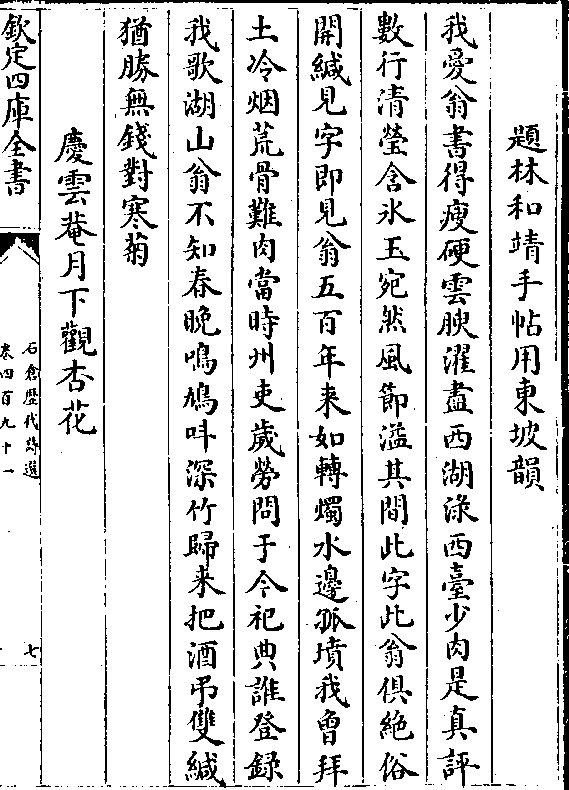 題林和靖手帖用東坡韻
我愛翁書得瘦硬雲腴濯盡西湖渌西臺少肉是真評
數行清瑩含氷玉宛然風節溢其間此字此翁俱絶俗
開緘見字即見翁五百年来如轉燭水邊孤墳我曾拜
土冷烟荒骨難肉當時州吏歲勞問于今祀典誰登録
我歌湖山翁不知春晚鳴鳩呌深竹歸来把酒弔雙緘
猶勝無錢對寒菊
慶雲菴月下觀杏花
欽定四庫全書
石倉歷代詩選
卷四百九十一
七